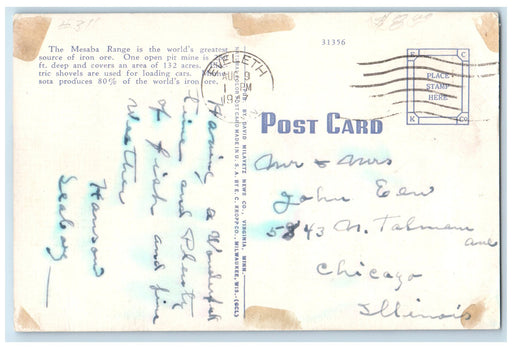 31356
The Mesaba Range is the world's greatest
source of iron ore. One open pit mine is
ft. deep and covers an area of 132 acres.
tric shovels are used for loading cars.
sota produces 80% of the world's iron ore.
EVELETH
AUG 9
1 PM
19
E C
PLACE
STAMP
HERE
K CO.
POST CARD
BY DAVID MILAVETZ NEWS CO., VIRGINIA, MINN.
POST CARD MADE IN U.S.A. BY E. C. KROPP CO., MILWAUKEE, WIS.
Having a Wonderful
time and Plenty
of fish and fine
Weather
Hanson
Seaberg
Mr & Mrs
John
5843 N. Talman
ave
Chicago
Illinois